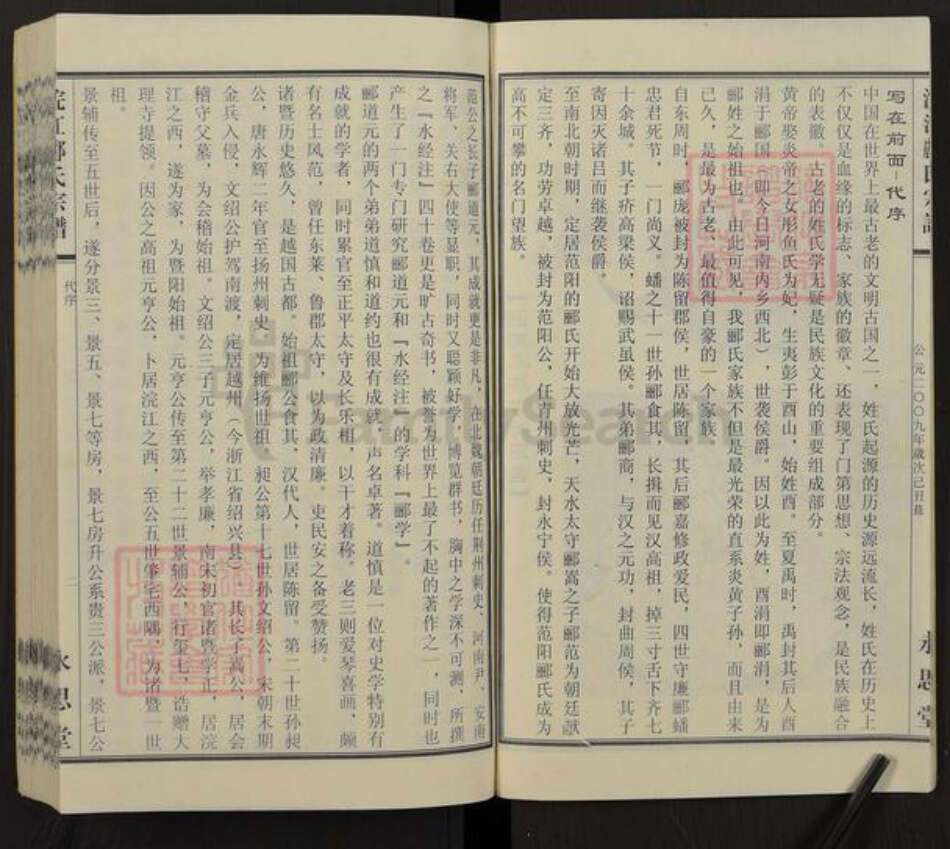 公元二〇〇九年歲次己丑莚
永思堂
写在前面-代序
中国在世界上最古老的文明古国之一，姓氏起源的历史源远流长，姓氏在历史上
不仅仅是血缘的标志、家族的徽章、还表现了门第思想、宗法观念，是民族融合
的表徽。古老的姓氏学无疑是民族文化的重要组成部分。
黄帝娶炎帝之女彤鱼氏为妃，生夷彭于酉山，始姓酉。至夏禹时，禹封其后人酉
涓于郦国（即今日河南内乡西北），世袭侯爵。因以此为姓，酉涓即郦涓，是为
郦姓之始祖也。由此可见，我郦氏家族不但是最光荣的直系炎黄子孙，而且由来
已久，是最为古老、最值得自豪的一个家族。
自东周时，郦庞被封为陈留郡侯，世居陈留，其后郦嘉修政爱民，四世守廉郦蟠
忠君死节，一门尚义。蟠之十一世孙郦食其，长揖而见汉高祖，掉三寸舌下齐七
十余城。其子疥高梁侯，诏赐武虽侯。其弟郦商，与汉之元功，封曲周侯，其子
寄因灭诸吕而继袭侯爵。
至南北朝时期，定居范阳的郦氏开始大放光芒，天水太守郦嵩之子郦范为朝廷献
定三齐，功劳卓越，被封为范阳公，任青州刺史，封永宁侯。使得范阳郦氏成为
高不可攀的名门望族。
范公之长子郦道元，其成就更是非凡，在北魏朝廷历任荆州刺史、河南尹、安南
将军、关右大使等显职，同时又聪颖好学，博览群书，胸中之学深不可测，所撰
之『水经注』四十卷更是旷古奇书，被誉为世界上最了不起的著作之一，同时也
产生了一门专门研究郦道元和『水经注』的学科『郦学』。
郦道元的两个弟弟道慎和道约也很有成就，声名卓著。道慎是一位对史学特别有
成就的学者，同时累官至正平太守及长乐相，以干才着称。老三则爱琴喜画，颇
有名士风范，曾任东莱、鲁郡太守，以为政清廉。吏民安之备受赞扬。
诸暨历史悠久，是越国古都。始祖郦公食其，汉代人，世居陈留。第二十世孙昶
公，唐永辉二年官至扬州刺史，为维扬世祖，昶公第十七世孙文绍公，宋朝末期
金兵入侵，文绍公护驾南渡，定居越州（今浙江省绍兴县），其长子高公，居会
稽守父墓，为会稽始祖。文绍公三子元亨公，举孝廉，南宋初官诸暨学正，居浣
江之西，遂为家、为暨阳始祖。元亨公传至第二十二世景辅公，行策七，诰赠大
理寺提领。因公之高祖元亨公，卜居浣江之西，至公五世肇宅西隅，为诸暨一世
祖。
景辅传至五世后，遂分景三、景五、景七等房，景七房升公系贵三公派，景七公
浣江郦氏宗谱
代序
二
永思堂